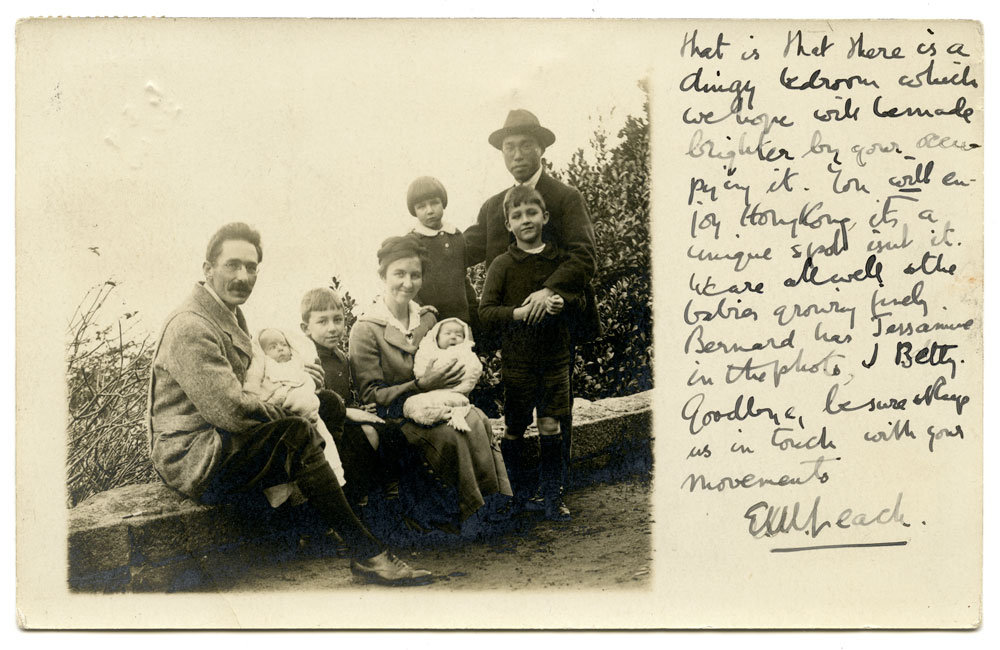 that is that there is a
dingy bedroom which
we hope will be made
brighter by your occu-
pying it. You will en-
joy HongKong, its a
unique spot isnt it.
We are all well & the
babies growing finely.
Bernard has Jessamine
in the photo, I Betty.
Goodbye, be sure & keep
us in touch with your
movements
E.M. Leach.